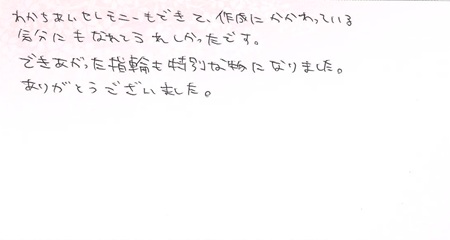 わかちあいセレモニーもできて、作成にかかわっている
気分にもなれてうれしかったです。
できあがった指輪も特別な物になりました。
ありがとうございました。